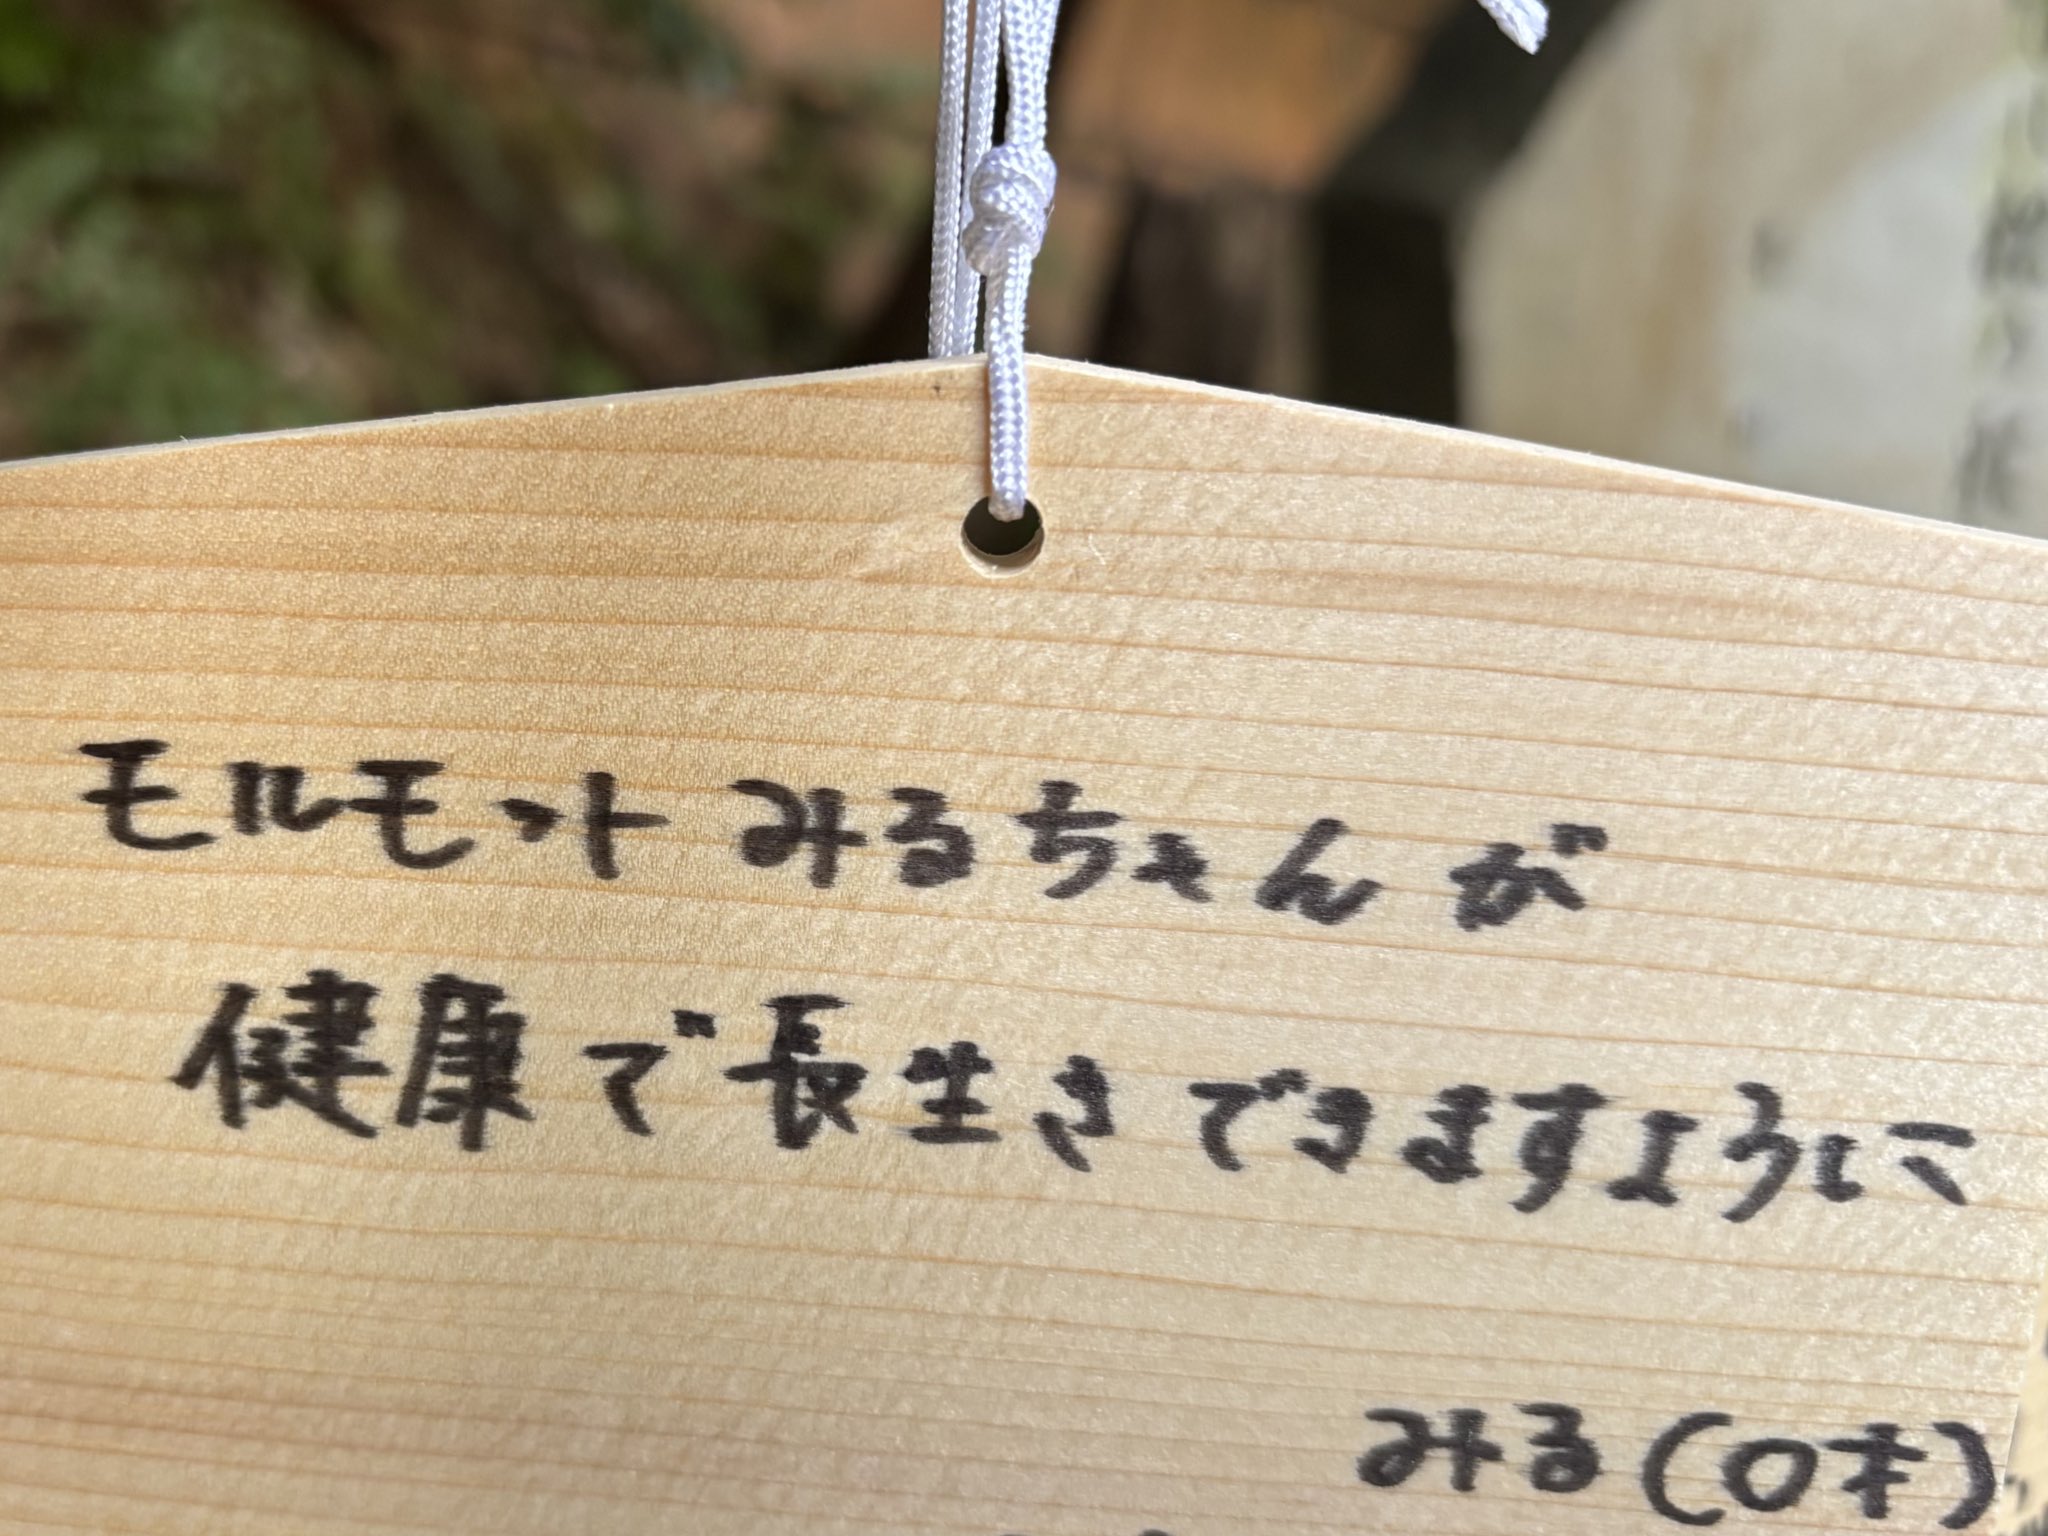 モルモットみるちゃんが
健康で長生きできますように
みる(0才)